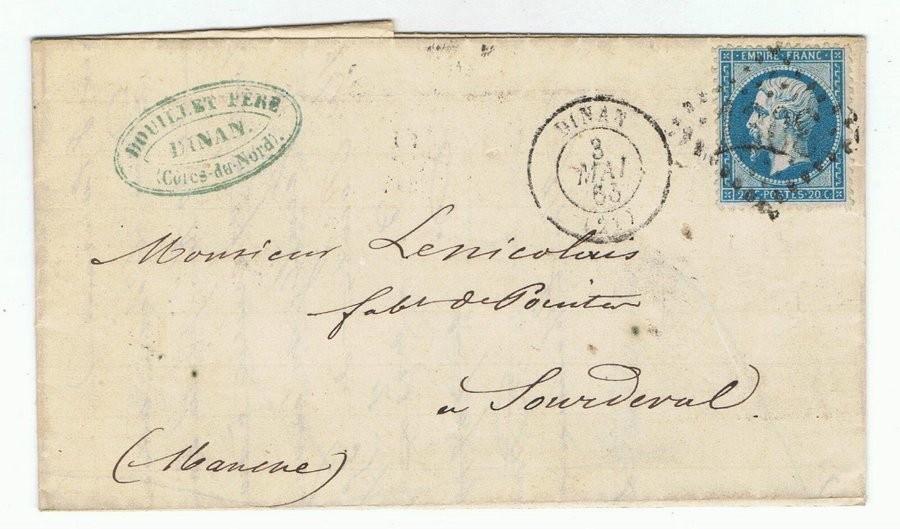 DOUILLET PÈRE
DINAN
(Côtes-du-Nord).
DINAN
3
MAI
63
(21)
EMPIRE FRANC
20 C POSTES 20 C
Monsieur Lenicolais
fabt de Pointes
a Sourdeval
(Manche)